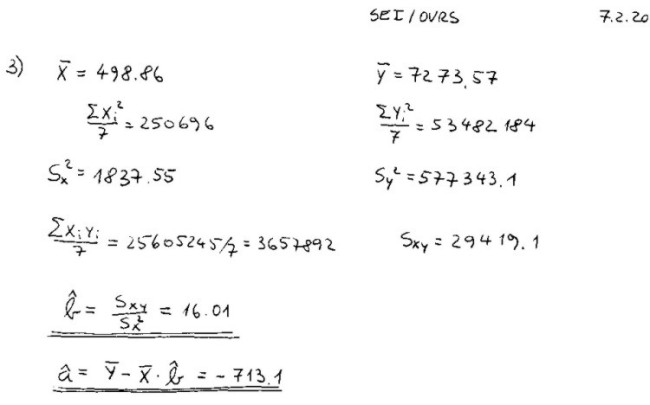 SEI/OVRS 7.2.20
3) x̄ = 498.86 ȳ = 7273.57
Σxᵢ²/7 = 250696 Σyᵢ²/7 = 53482184
Sₓ² = 1837.55 Sy² = 577343.1
Σxᵢyᵢ/7 = 25605245/7 = 3657892 Sxy = 29419.1
b̂ = Sxy/Sx² = 16.01
â = ȳ - x̄ · b̂ = -713.1